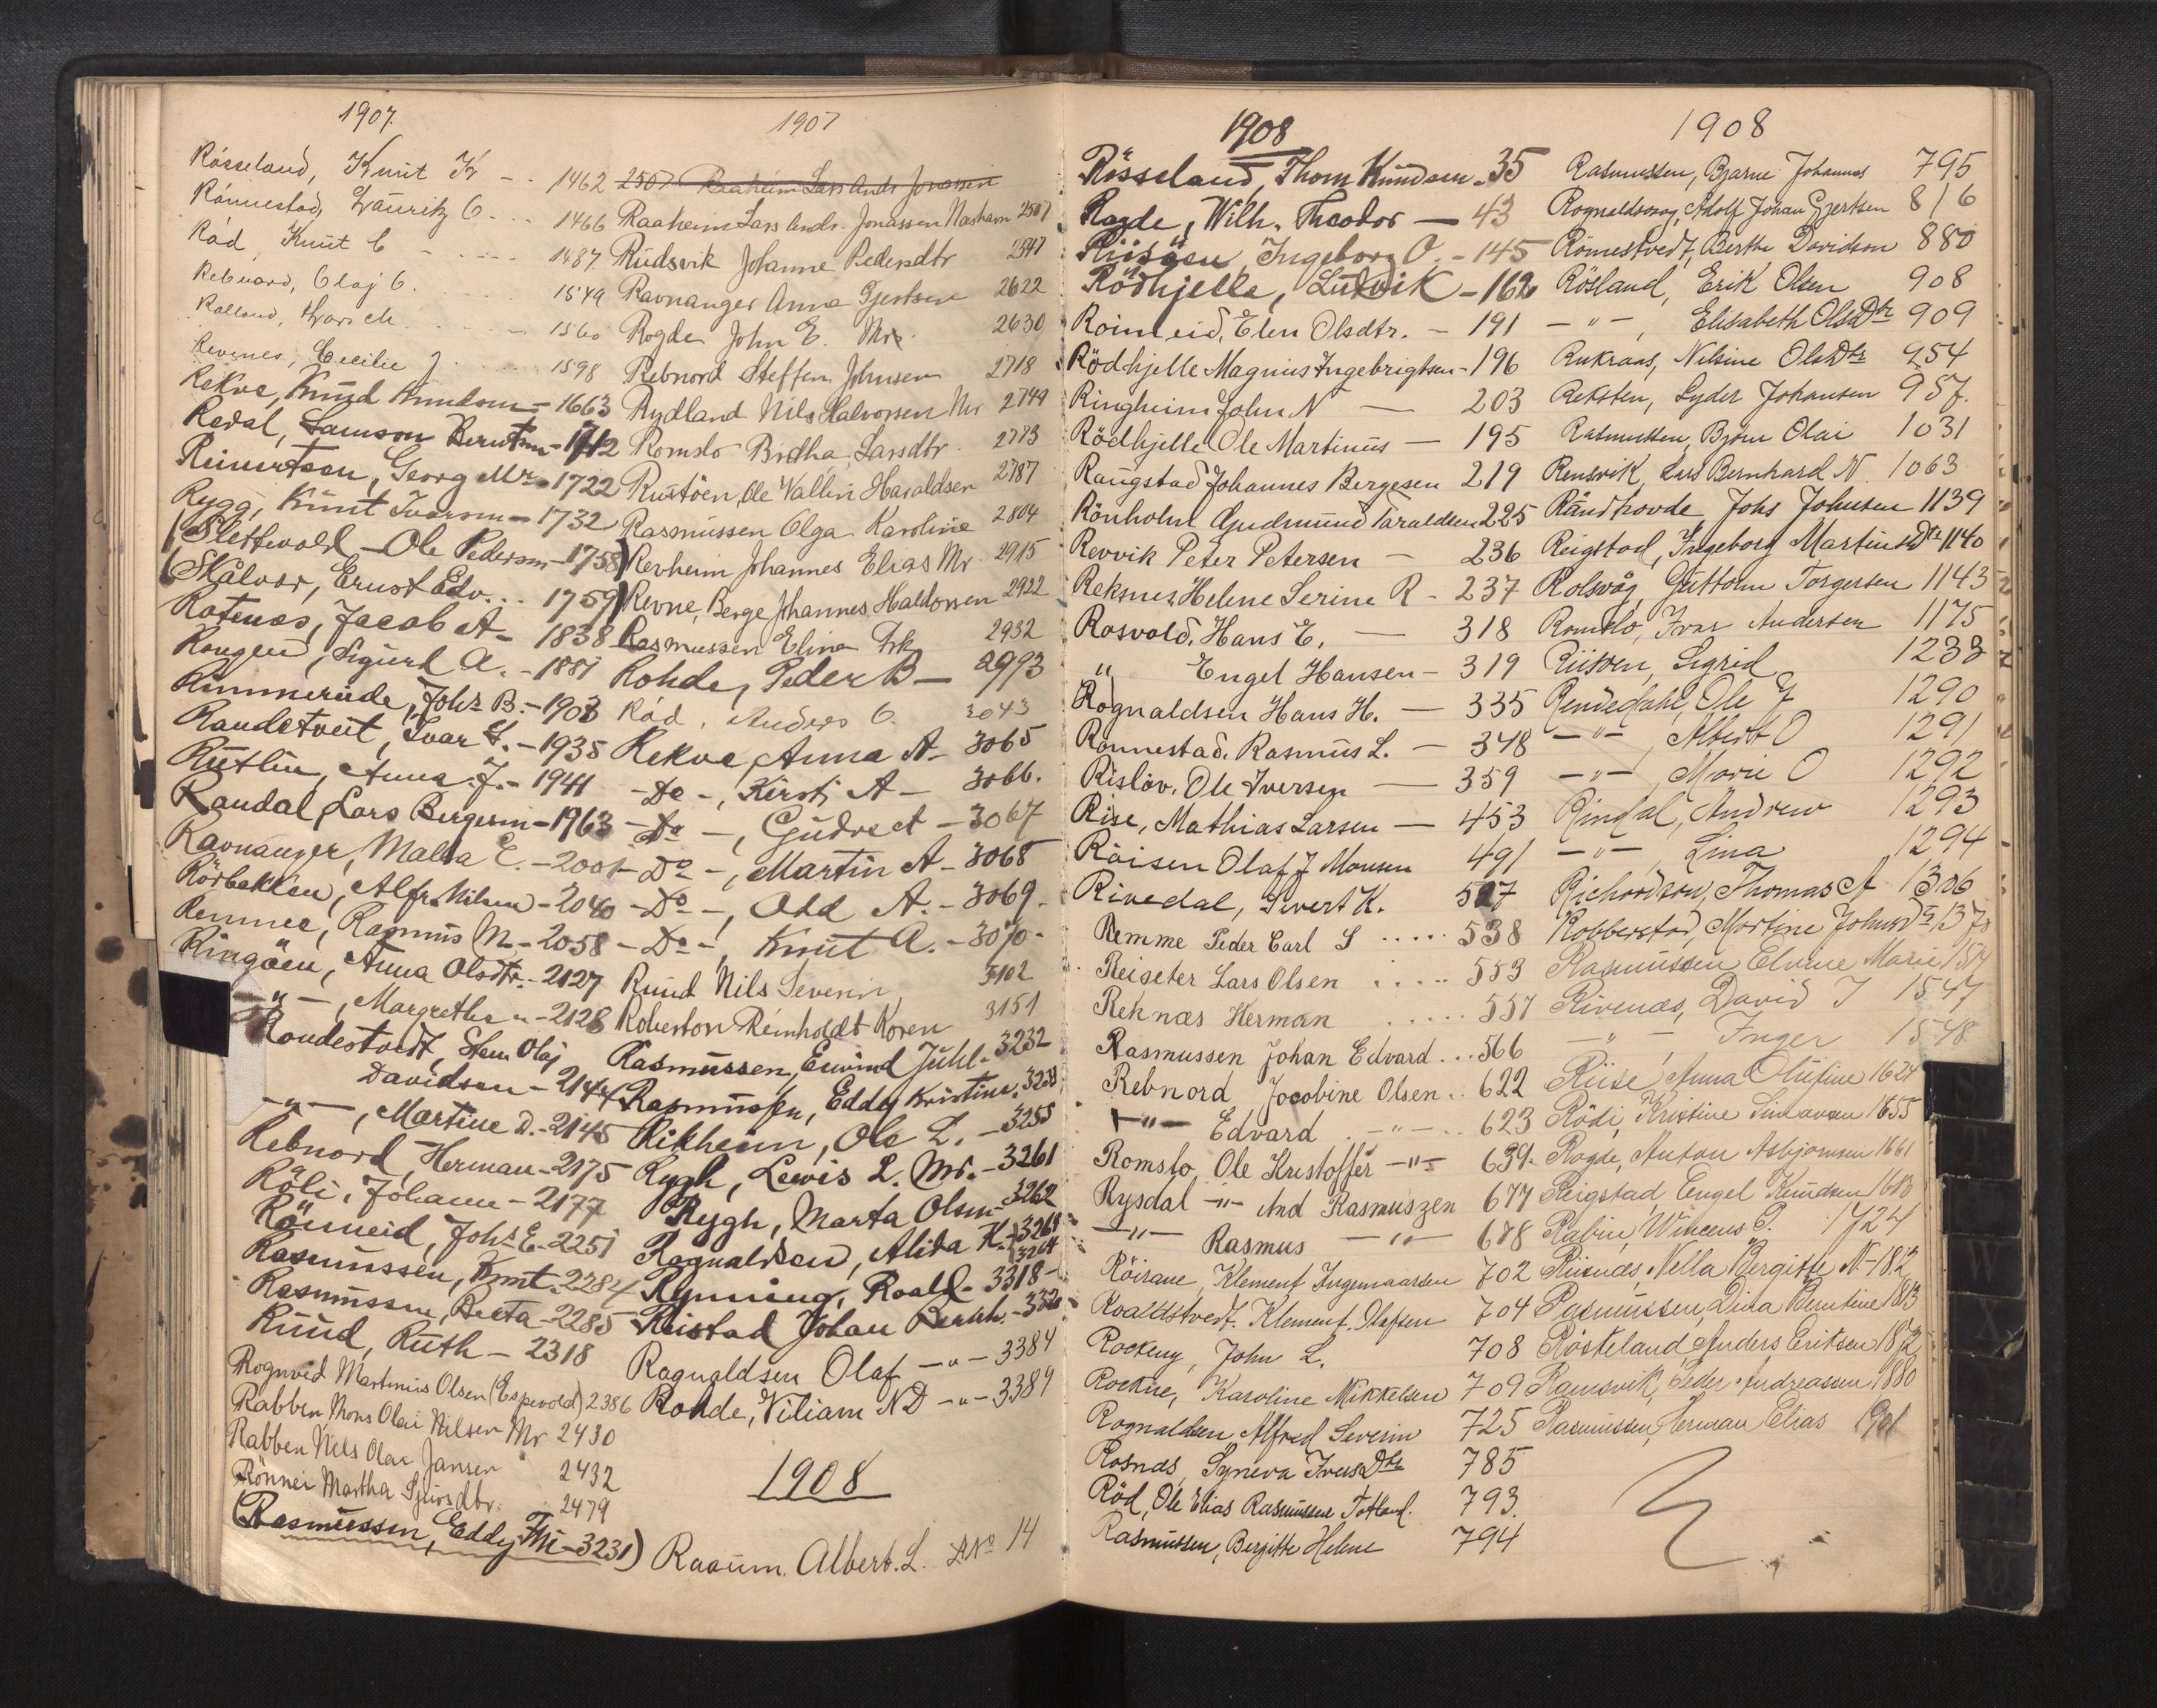 1907.
Rösseland, Knut K - - 1462
Rönnestad, Lauritz O. - - 1466
Röd, Knut C - - - 1487
Rebnord, Olaj O. 1549
Rolland, 1560
Revenes, Cecilie J 1598
Rekve, Knud Knudsen - 1663
Redal, Samson Berntsen - 1712
Reinertsen, Georg Mr. - 1722
Rygg, Knut Ivarsen - 1732
(Slettevold - Ole Pedersen - 1758)
(Skålvær, Ernst Edv... 1759)
Rotenæs, Jacob A - 1838
Rongen, Sigurd A. - 1881
Rimmereide, Johs B. - 1903
Raudstveit, Ivar S. - 1935
Rutlin, Anna J. - 1941
Raudal, Lars Bergesen - 1963
Ravnanger, Malla E. - 2001
Rörbakken, Alfr. Nilsen - 2040
Remme, Rasmus M. - 2058
Ringöen, Anna Olsdtr. - 2127
- " - , Margrethe " - 2128
Rondestvedt, Sten Olaj
Davidsen - 2144
- " - , Martine D. - 2145
Rebnord, Herman - 2175
Röli, Johanne - 2177
Rönneid, Johs E. - 2251
Rasmussen, Knut - 2284
Rasmussen, Berta - 2285
Ruud, Ruth - 2318
Rognved Martinius Olsen (Espevold) 2386
Rabben Mons Olai Nilsen Mr 2430
Rabben Nils Olai Jansen 2432
Rönnei Martha Sjursdtr. 2479
(Rasmussen, Eddy Th - 3231)
1907
2507 Raaheim Lars Andr Jonassen
Raaheim Lars Andr. Jonassen Nasham 2507
Rudsvik Johanne Pedersdtr 2547
Ravnanger Anna Gjertsen 2622
Rogde John E. Mr. 2630
Rebnord Steffen Johnsen 2718
Rydland Nils Halvorsen Mr 2744
Romslo Brita Larsdtr 2773
Rustöen, Ole Vallin Haraldsen 2787
Rasmussen Olga Karoline 2804
Revheim Johannes Elias Mr. 2915
Revne, Berge Johannes Haldorsen 2922
Rasmussen Elina Frk 2932
Rohde, Peder B - 2993
Röd, Andreas O. 3043
Rekve, Anna A - 3065
- Do - , Kirsti A - 3066.
- Do - , Gudve A - 3067
- Do - , Martin A - 3068
- Do - , Odd A. - 3069.
- Do - , Knut A. - 3070.
Ruud Nils Severin 3102
Robertson Reinholdt Koren 3151
Rasmussen, Eivind Juhl - 3232
Rasmussen, Eddy Kristine. 3233
Rikheim, Ole L. - 3255
Rygh, Lewis L. Mr. - 3261
Rygh, Marta Olsen 3262
Ragnaldsen, Alida K. - 3263 3264
Rynning, Roald - 3318 -
Reistad Johan Bernh. - 332
Ragnaldsen Olaf - " - 3384
Rohde, Viliam N D - " - 3389
1908
Raaum. Albert. L. No 14
1908
Rösseland, Thom Knudsen - 35
Rogde, Wilh. Theodor - 43
Riisöen, Ingeborg O. - 145
Rödhjelle, Ludvik - 162
Roimeid, Elen Olsdtr. - 191
Rödhjelle Magnus Ingebrigtsen - 196
Ringheim John N - 203
Rödhjelle Ole Martinus - 195
Raugstad Johannes Bergesen 219
Rönholm Gudmund Taraldsen 225
Revvik Peter Petersen - 236
Reksnes, Helene Serine R - 237
Rosvold, Hans E. - 318
" Engel Hansen - 319
Rognaldsen Hans H. - 335
Rönnestad. Rasmus L. - 348
Rislöv. Ole Iversen - 359
Rise, Mathias Larsen - 453
Röisen Olaf J Monsen 491
Rivedal, Sivert K. 507
Remme Peder Carl S ..... 538
Reiseter Lars Olsen ..... 553
Reknæs Herman ..... 557
Rasmussen Johan Edvard ... 566
Rebnord Jocobine Olsen .. 622
- " - Edvard - " - .. 623
Romslo Ole Kristoffer - " - 639.
Rysdal - " - And Rasmuszen 677
- " - Rasmus - " - 678
Röirane, Klement Ingemaarsen 702
Roaldstvedt. Klement. Olafsen 704
Rockeny, John L. 708
Rockne, Karoline Mikkelsen 709
Rognaldsen Alfred Severin 725
Rosnæs, Syneva Ivers Dtr 785
Röd, Ole Elias Rasmussen Totland. 793.
Rasmussen, Bergitte Helene 794
1908
Rasmussen, Bjarne Johannes 795
Rognaldsvaag, Adolf Johan Gjertsen 816
Römestvedt, Berthe Davidsen 880
Rösland, Erik Olsen 908
- " - , Elisabeth Ols Dtr 909
Rukraas, Nilsine Ols Dtr 954
Reksten, Lyder Johansen 957.
Rasmussen, Björn Olai 1031
Remsvik, Lars Bernhard N. 1063
Råndhovde, Johs Johnsen 1139
Reigstad, Ingeborg Martins Dtr 1140
Rolsvåg, Guttorm Torgersen 1143
Romslo, Ivar Andersen 1175
Riisöen, Sigrid 1233
Rendedahl, Ole J 1290
- " - , Albert O 1291
- " - , Marie O 1292
Rindal, Andrew 1293
- " - , Lina 1294
Richardson, Thomas A 1306
Robberstad, Martine Johns Dtr 137
Rasmussen Elvine Marie 1514
Rivenæs, David J 1547
- " - , Inger 1548
Riise, Anna Olufine 1624
Rödi, Kristine Simonsen 1655
Rogde, Anton Asbjørnsen 1661
Reigstad, Engel Knudsen 1683
Rabin, Wincens P. - 1724
Riisnæs, Nella Bergitte N - 1812
Rasmussen, Dina Berntine 1813
Rösteland, Anders Eriksen 1872
Ramsvik, Peder Andreassen 1880
Rasmussen, Herman Elias 1901